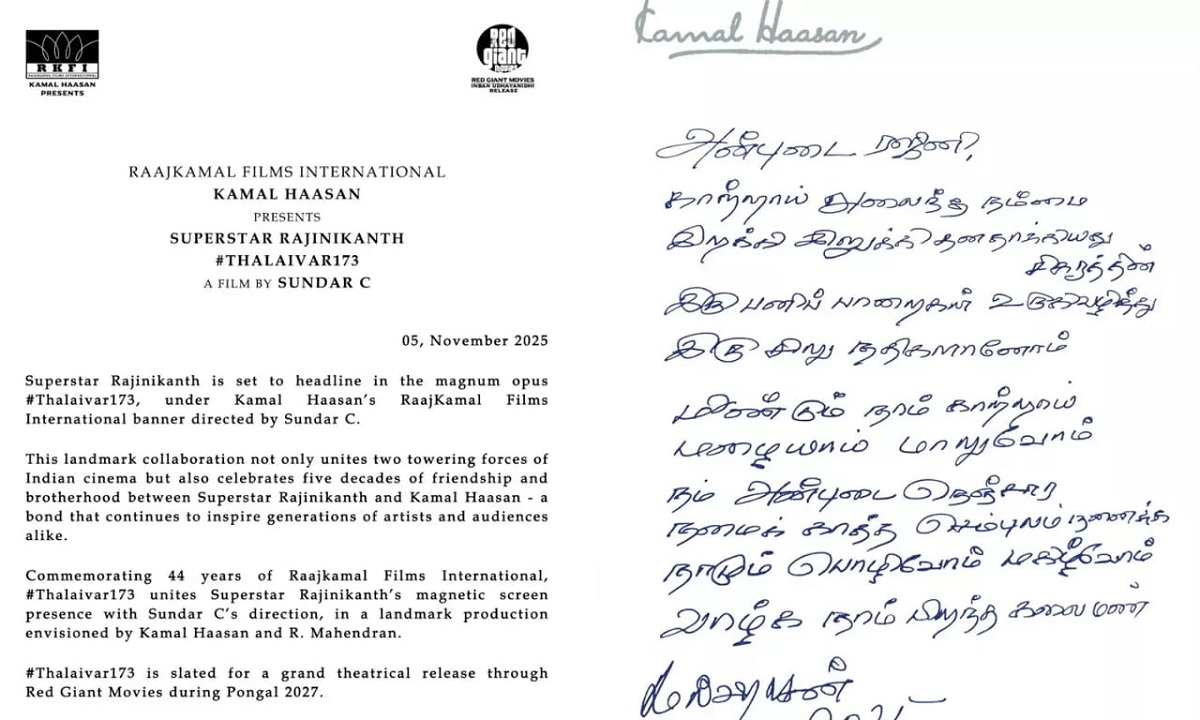 RKFI
RAAJKAMAL FILMS INTERNATIONAL
KAMAL HAASAN
PRESENTS
Red
giant
movies
RED GIANT MOVIES
INBAN UDHAYANIDHI
RELEASE
RAAJKAMAL FILMS INTERNATIONAL
KAMAL HAASAN
PRESENTS
SUPERSTAR RAJINIKANTH
#THALAIVAR173
A FILM BY SUNDAR C
05, November 2025
Superstar Rajinikanth is set to headline in the magnum opus
#Thalaivar173, under Kamal Haasan’s RaajKamal Films
International banner directed by Sundar C.
This landmark collaboration not only unites two towering forces of
Indian cinema but also celebrates five decades of friendship and
brotherhood between Superstar Rajinikanth and Kamal Haasan - a
bond that continues to inspire generations of artists and audiences
alike.
Commemorating 44 years of Raajkamal Films International,
#Thalaivar173 unites Superstar Rajinikanth’s magnetic screen
presence with Sundar C’s direction, in a landmark production
envisioned by Kamal Haasan and R. Mahendran.
#Thalaivar173 is slated for a grand theatrical release through
Red Giant Movies during Pongal 2027.
Kamal Haasan
அன்புடை ரஜினி,
காற்றாய் அலைந்த நம்மை
இறக்கி இறுக்கி தனதாக்கியது
சிகரத்தின்
இரு பனிப் பாறைகள் உருகிவழிந்து
இரு சிறு நதிகளானோம்
மீண்டும் நாம் காற்றாய்
மழையாய் மாறுவோம்
நம் அன்புடை நெஞ்சார
நமைக் காத்த செம்புலம் நனைக்க
நாடும் பொழிவோம் மகிழ்வோம்
வாழ்க நாம் பிறந்த கலைமண்